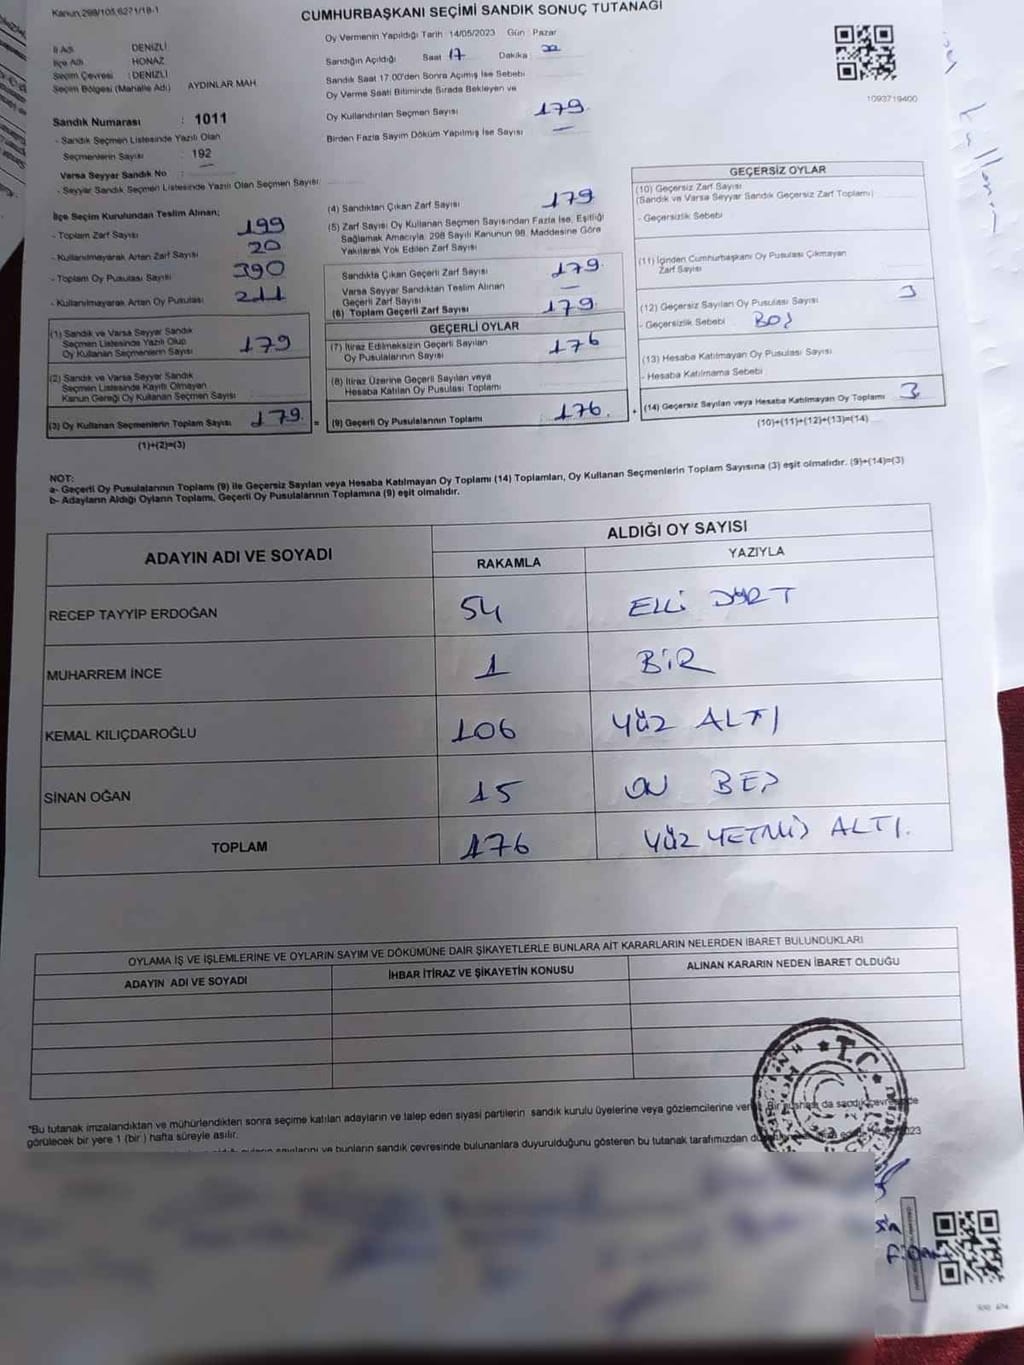 Kanun,298/105,6271/18-1
CUMHURBAŞKANI SEÇİMİ SANDIK SONUÇ TUTANAĞI
İl Adı DENİZLİ
İlçe Adı HONAZ
Seçim Çevresi : DENİZLİ
Seçim Bölgesi (Mahalle Adı) AYDINLAR MAH
Sandık Numarası : 1011
- Sandık Seçmen Listesinde Yazılı Olan
Seçmenlerin Sayısı : 192
Varsa Seyyar Sandık No
- Seyyar Sandık Seçmen Listesinde Yazılı Olan Seçmen Sayısı:
Oy Vermenin Yapıldığı Tarih 14/05/2023 Gün Pazar
Sandığın Açıldığı Saat 17 Dakika
Sandık Saat 17.00'den Sonra Açımış İse Sebebi
Oy Verme Saati Bitiminde Sırada Bekleyen ve
Oy Kullandırılan Seçmen Sayısı 179
Birden Fazla Sayım Döküm Yapılmış İse Sayısı —
1093719400
İlçe Seçim Kurulundan Teslim Alınan;
- Toplam Zarf Sayısı 199
- Kullanılmayarak Artan Zarf Sayısı 20
- Toplam Oy Pusulası Sayısı 390
- Kullanılmayarak Artan Oy Pusulası 211
(1) Sandık ve Varsa Seyyar Sandık
Seçmen Listesinde Yazılı Olup
Oy Kullanan Seçmenlerin Sayısı 179
(2) Sandık ve Varsa Seyyar Sandık
Seçmen Listesinde Kayıtlı Olmayan
Kanun Gereği Oy Kullanan Seçmen Sayısı
(3) Oy Kullanan Seçmenlerin Toplam Sayısı 179
(1)+(2)=(3)
(4) Sandıktan Çıkan Zarf Sayısı 179
(5) Zarf Sayısı Oy Kullanan Seçmen Sayısından Fazla İse, Eşitliği
Sağlamak Amacıyla, 298 Sayılı Kanunun 98. Maddesine Göre
Yakılarak Yok Edilen Zarf Sayısı
Sandıkta Çıkan Geçerli Zarf Sayısı 179
Varsa Seyyar Sandıktan Teslim Alınan
Geçerli Zarf Sayısı —
(6) Toplam Geçerli Zarf Sayısı 179
GEÇERLİ OYLAR
(7) İtiraz Edilmeksizin Geçerli Sayılan
Oy Pusulalarının Sayısı 176
(8) İtiraz Üzerine Geçerli Sayılan veya
Hesaba Katılan Oy Pusulası Toplamı
= (9) Geçerli Oy Pusulalarının Toplamı 176
GEÇERSİZ OYLAR
(10) Geçersiz Zarf Sayısı
(Sandık ve Varsa Seyyar Sandık Geçersiz Zarf Toplamı)
- Geçersizlik Sebebi
(11) İçinden Cumhurbaşkanı Oy Pusulası Çıkmayan
Zarf Sayısı
(12) Geçersiz Sayılan Oy Pusulası Sayısı 3
- Geçersizlik Sebebi BOŞ
(13) Hesaba Katılmayan Oy Pusulası Sayısı
- Hesaba Katılmama Sebebi
+ (14) Geçersiz Sayılan veya Hesaba Katılmayan Oy Toplamı 3
(10)+(11)+(12)+(13)=(14)
NOT:
a- Geçerli Oy Pusulalarının Toplamı (9) ile Geçersiz Sayılan veya Hesaba Katılmayan Oy Toplamı (14) Toplamları, Oy Kullanan Seçmenlerin Toplam Sayısına (3) eşit olmalıdır. (9)+(14)=(3)
b- Adayların Aldığı Oyların Toplamı, Geçerli Oy Pusulalarının Toplamına (9) eşit olmalıdır.
ADAYIN ADI VE SOYADI
ALDIĞI OY SAYISI
RAKAMLA YAZIYLA
RECEP TAYYİP ERDOĞAN 54 ELLİ DÖRT
MUHARREM İNCE 1 BİR
KEMAL KILIÇDAROĞLU 106 YÜZ ALTI
SİNAN OĞAN 15 ON BEŞ
TOPLAM 176 YÜZ YETMİŞ ALTI.
OYLAMA İŞ VE İŞLEMLERİNE VE OYLARIN SAYIM VE DÖKÜMÜNE DAİR ŞİKAYETLERLE BUNLARA AİT KARARLARIN NELERDEN İBARET BULUNDUKLARI
ADAYIN ADI VE SOYADI İHBAR İTİRAZ VE ŞİKAYETİN KONUSU ALINAN KARARIN NEDEN İBARET OLDUĞU
T.C.
*Bu tutanak imzalandıktan ve mühürlendikten sonra seçime katılan adayların ve talep eden siyasi partilerin sandık kurulu üyelerine veya gözlemcilerine Bir da
görülecek bir yere 1 (bir ) hafta süreyle asılır.
ve bunların sandık çevresinde bulunanlara duyurulduğunu gösteren bu tutanak tarafımızdan